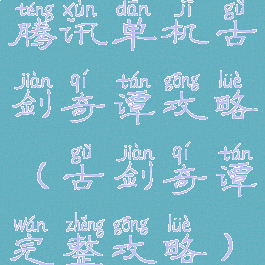 téng xùn dān jī gǔ
腾讯单机古
jiàn qí tán gōng lüè
剑奇谭攻略
gǔ jiàn qí tán
（古剑奇谭
wán zhěng gōng lüè
完整攻略）